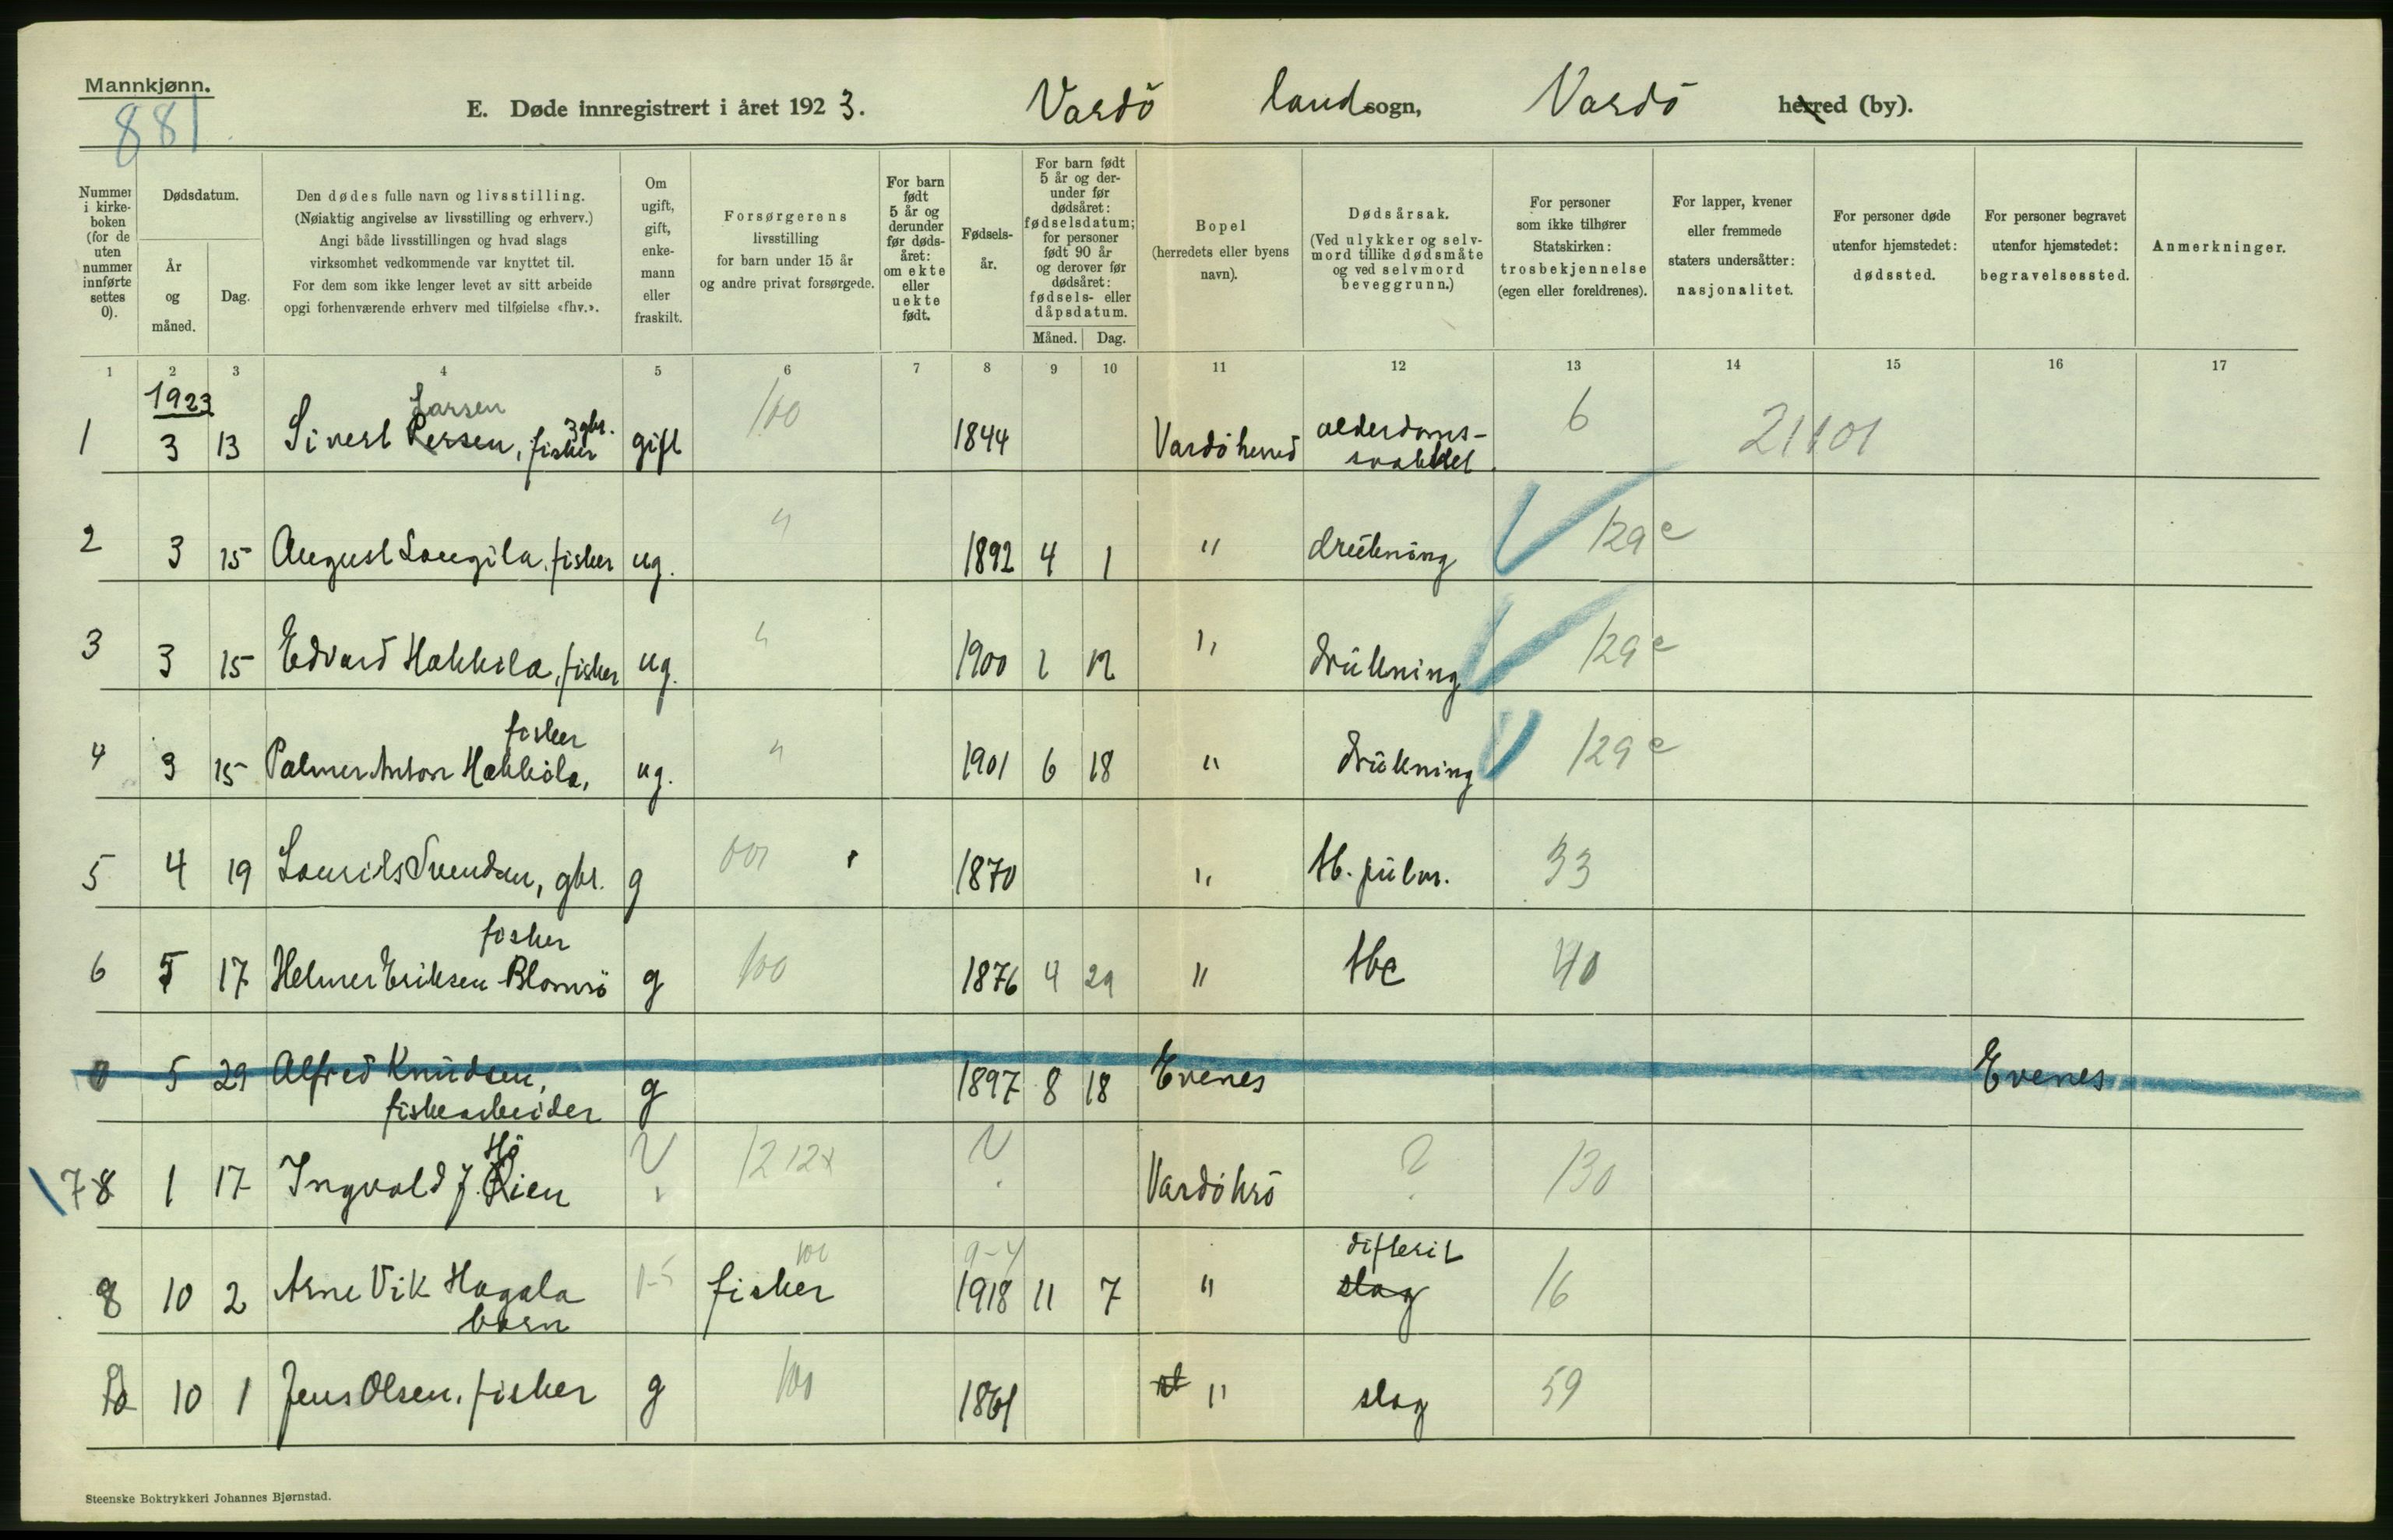 Mannkjønn.
881
E. Døde innregistrert i året 1923. Vardö landsogn, Vardö herred (by).
Nummer i kirke- boken (for de uten nummer innførte settes 0).
Dødsdatum.
År og måned.
Dag.
Den dødes fulle navn og livsstilling.
(Nøiaktig angivelse av livsstilling og erhverv.)
Angi både livsstillingen og hvad slags
virksomhet vedkommende var knyttet til.
For dem som ikke lenger levet av sitt arbeide
opgi forhenværende erhverv med tilføielse «fhv.».
Om ugift, gift, enke- mann eller fraskilt.
Forsørgerens
livsstilling
for barn under 15 år
og andre privat forsørgede.
For barn født 5 år og derunder før døds- året: om ekte eller uekte født.
Fødsels- år.
For barn født 5 år og der- under før dødsåret: fødselsdatum; for personer født 90 år og derover før dødsåret: fødsels- eller dåpsdatum.
Måned. Dag.
Bopel
(herredets eller byens
navn).
Dødsårsak.
(Ved ulykker og selv-
mord tillike dødsmåte
og ved selvmord
beveggrunn.)
For personer
som ikke tilhører
Statskirken:
trosbekjennelse
(egen eller foreldrenes).
For lapper, kvener
eller fremmede
staters undersåtter:
nasjonalitet.
For personer døde
utenfor hjemstedet:
dødssted.
For personer begravet
utenfor hjemstedet:
begravelsessted.
Anmerkninger.
1 2 3 4 5 6 7 8 9 10 11 12 13 14 15 16 17
1923
Larsen
1 3 13 Sivert Persen, fisker gbr. gift 100 1844 Vardö herred alderdoms-
svakhet 6 21101
2 3 15 August Laugila, fisker ug. " 1892 4 1 " drukning 129 e
3 3 15 Edvard Hakkila, fisker ug. " 1900 1 12 " drukning 129 e
fisker
4 3 15 Palmer Anton Hakkila, ug. " 1901 6 18 " drukning 129 e
5 4 19 Laurits Svendsen, gbr. g 001 1870 " tb. pulm. 33
fisker
6 5 17 Helmer Eriksen Blomsö g 100 1876 4 29 " tbc 40
0 5 29 Alfred Knudsen, g 1897 8 18 Evenes Evenes
fiskearbeider
78 1 17 Ingvald J. Höien ? 12 12x ? Vardö hrd ? 130
8 10 2 Arne Vik Hagala 0-5 fisker 100 9-4 1918 11 7 " difterit slag 16
barn
10 1 Jens Olsen, fisker g 100 1861 " slag 59
Steenske Boktrykkeri Johannes Bjørnstad.